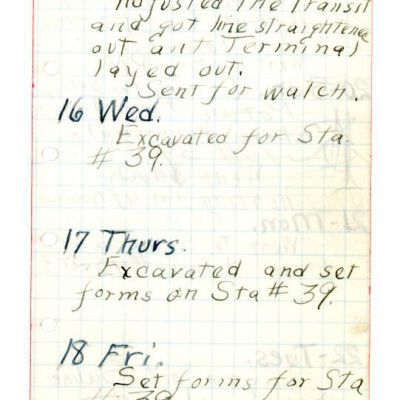 Adjusted the Transit
and got line straightened
out ant Terminal
layed out.
Sent for watch.
16 Wed.
Excavated for Sta.
# 39.
17 Thurs.
Excavated and set
forms on Sta # 39.
18 Fri.
Set forms for Sta
# 39
21-Mon.
22-Tues.